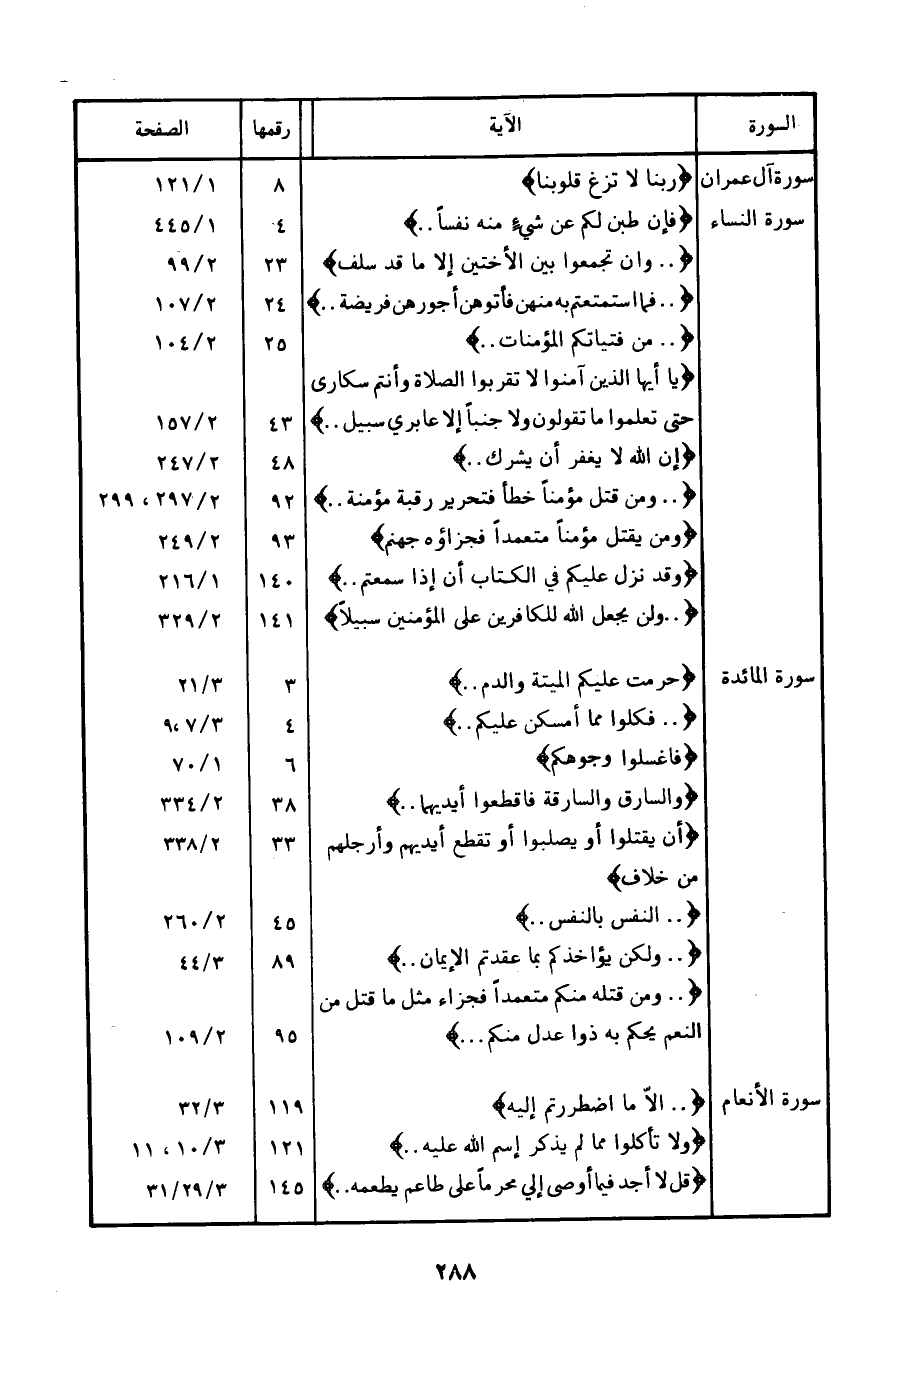 السورة الآية رقمها الصفحة
سورة آل عمران ﴿ربنا لا تزغ قلوبنا﴾ ٨ ١٢١/١
سورة النساء ﴿فإن طبن لكم عن شيءٍ منه نفساً..﴾ ٤ ٤٤٥/١
﴿.. وان تجمعوا بين الأختين إلا ما قد سلف﴾ ٢٣ ٩٩/٢
﴿.. فما استمتعتم به منهن فأتوهن أجورهن فريضة..﴾ ٢٤ ١٠٧/٢
﴿.. من فتياتكم المؤمنات..﴾ ٢٥ ١٠٤/٢
﴿يا أيها الذين آمنوا لا تقربوا الصلاة وأنتم سكارى
حتى تعلموا ما تقولون ولا جنباً إلا عابري سبيل..﴾ ٤٣ ١٥٧/٢
﴿إن الله لا يغفر أن يشرك..﴾ ٤٨ ٢٤٧/٢
﴿.. ومن قتل مؤمناً خطأ فتحرير رقبة مؤمنة..﴾ ٩٢ ٢٩٧/٢، ٢٩٩
﴿ومن يقتل مؤمناً متعمداً فجزاؤه جهنم﴾ ٩٣ ٢٤٩/٢
﴿وقد نزل عليكم في الكتاب أن إذا سمعتم..﴾ ١٤٠ ٢١٦/١
﴿..ولن يجعل الله للكافرين على المؤمنين سبيلاً﴾ ١٤١ ٣٢٩/٢
سورة المائدة ﴿حرمت عليكم الميتة والدم..﴾ ٣ ٢١/٣
﴿.. فكلوا مما أمسكن عليكم..﴾ ٤ ٧/٣، ٩
﴿فاغسلوا وجوهكم﴾ ٦ ٧٠/١
﴿والسارق والسارقة فاقطعوا أيديهما..﴾ ٣٨ ٣٣٤/٢
﴿أن يقتلوا أو يصلبوا أو تقطع أيديهم وأرجلهم ٣٣ ٣٣٨/٢
من خلاف﴾
﴿.. النفس بالنفس..﴾ ٤٥ ٢٦٠/٢
﴿.. ولكن يؤاخذكم بما عقدتم الإيمان..﴾ ٨٩ ٤٤/٣
﴿.. ومن قتله منكم متعمداً فجزاء مثل ما قتل من
النعم يحكم به ذوا عدل منكم...﴾ ٩٥ ١٠٩/٢
سورة الأنعام ﴿.. الاّ ما اضطررتم إليه﴾ ١١٩ ٣٢/٣
﴿ولا تأكلوا مما لم يذكر إسم الله عليه..﴾ ١٢١ ١٠/٣، ١١
﴿قل لا أجد فيما أوصى إلي محرماً على طاعم يطعمه..﴾ ١٤٥ ٣١/٢٩/٣
٢٨٨